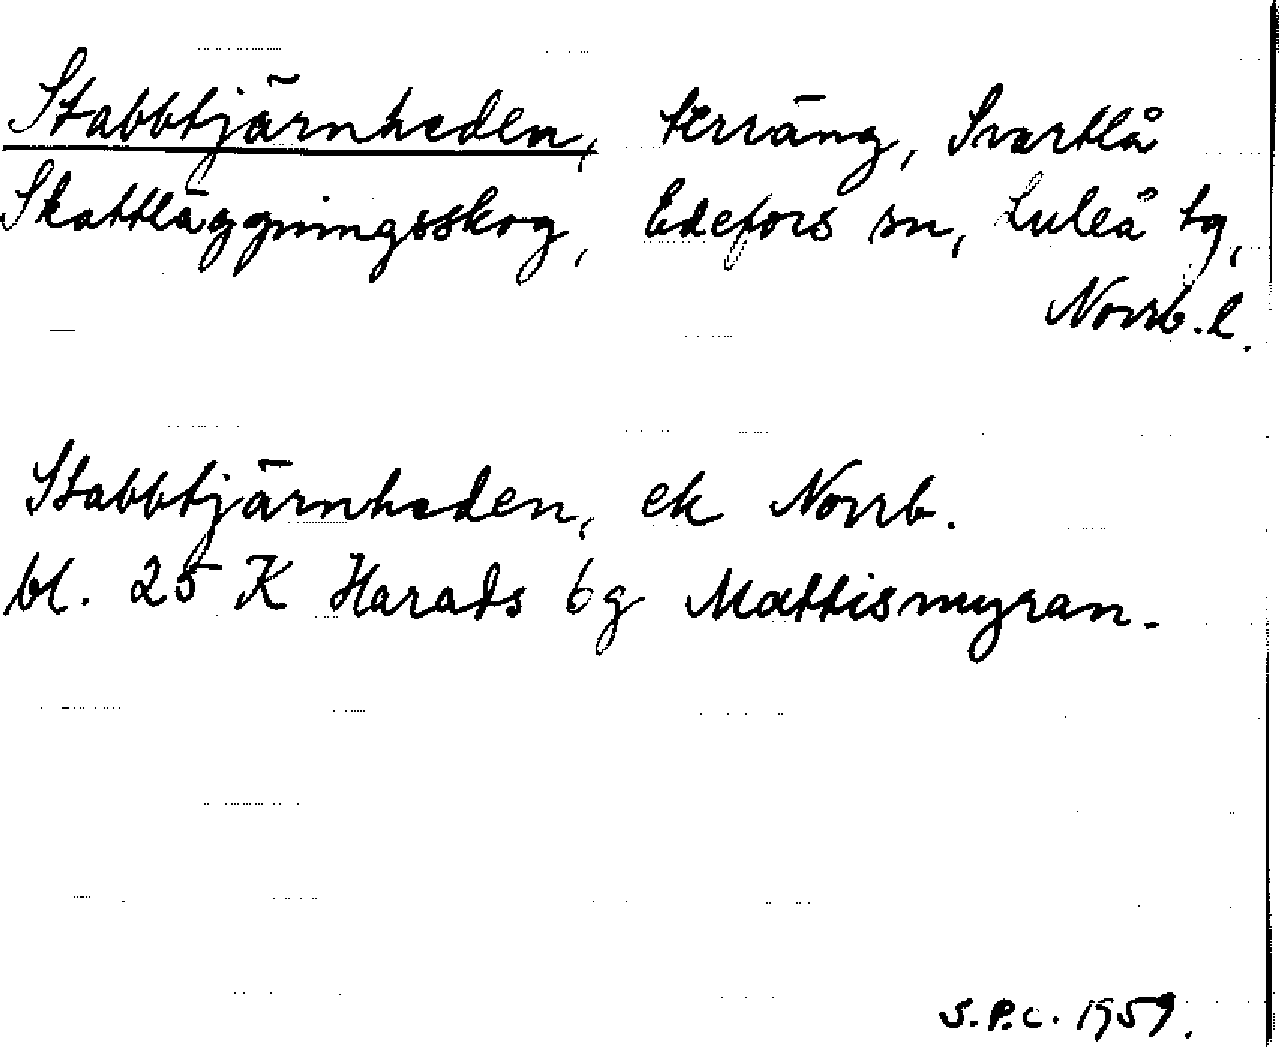 Stabbtjärnheden, terräng, Svartlå
Skattläggningsskog, Edefors sn, Luleå tg,
Norrb. l.
Stabbtjärnheden, ek Norrb.
bl. 25 K Harads 6g Mattismyran.
S.P.C. 1959.